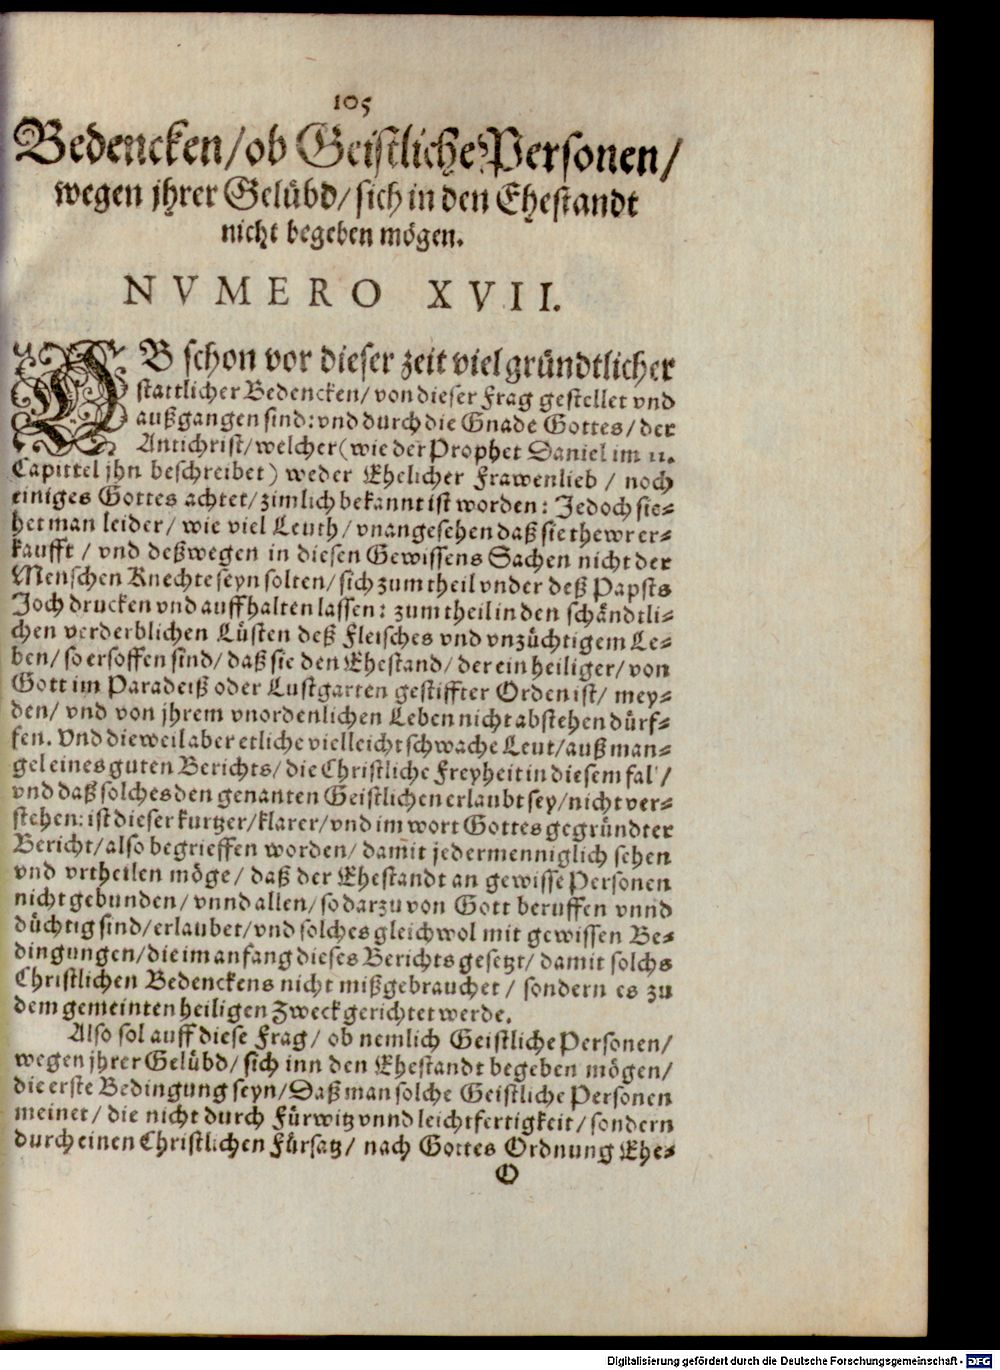 105
Bedencken/ob Geistliche Personen/
wegen jhrer Gelübd/sich in den Ehestandt
nicht begeben mögen.
NVMERO XVII.
OB schon vor dieser zeit viel gründtlicher
stattlicher Bedencken/von dieser Frag gestellet vnd
außgangen sind: vnd durch die Gnade Gottes/der
Antichrist/welcher (wie der Prophet Daniel im 11.
Capittel jhn beschreibet) weder Ehelicher Frawenlieb / noch
einiges Gottes achtet/zimlich bekannt ist worden: Jedoch sie-
het man leider/ wie viel Leuth/vnangesehen daß sie thewr er-
kaufft / vnd deßwegen in diesen Gewissens Sachen nicht der
Menschen Knechte seyn solten/sich zum theil vnder deß Papsts
Joch drucken vnd auffhalten lassen: zum theil in den schändtli-
chen verderblichen Lüsten deß Fleisches vnd vnzüchtigem Le-
ben/so ersoffen sind/daß sie den Ehestand/der ein heiliger/von
Gott im Paradeiß oder Lustgarten gestiffter Orden ist/ mey-
den/ vnd von jhrem vnordenlichen Leben nicht abstehen dürf-
fen. Vnd dieweil aber etliche vielleicht schwache Leut/auß man-
gel eines guten Berichts/die Christliche Freyheit in diesem fal /
vnd daß solches den genanten Geistlichen erlaubt sey/nicht ver-
stehen: ist dieser kurtzer/klarer/vnd im wort Gottes gegründter
Bericht/also begrieffen worden/damit jedermenniglich sehen
vnd vrtheilen möge/ daß der Ehestandt an gewisse Personen
nicht gebunden/vnnd allen/so darzu von Gott beruffen vnnd
düchtig sind/erlaubet/vnd solches gleichwol mit gewissen Be-
dingungen/die im anfang dieses Berichts gesetzt/damit solchs
Christlichen Bedenckens nicht mißgebrauchet / sondern es zu
dem gemeinten heiligen Zweck gerichtet werde.
Also sol auff diese Frag/ ob nemlich Geistliche Personen/
wegen jhrer Gelübd/sich inn den Ehestandt begeben mögen/
die erste Bedingung seyn/Daß man solche Geistliche Personen
meinet/die nicht durch Fürwitz vnnd leichtfertigkeit/sondern
durch einen Christlichen Fürsatz/ nach Gottes Ordnung Ehe-
O
Digitalisierung gefördert durch die Deutsche Forschungsgemeinschaft - DFG